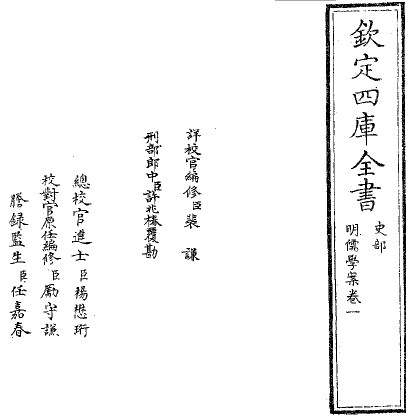 欽定四庫全書
史部
明儒學案卷一
詳校官編修臣裴謙
刑部郎中臣許兆椿覆勘
總校官進士臣楊懋珩
校對官原任編修臣勵守謙
謄錄監生臣任嘉春